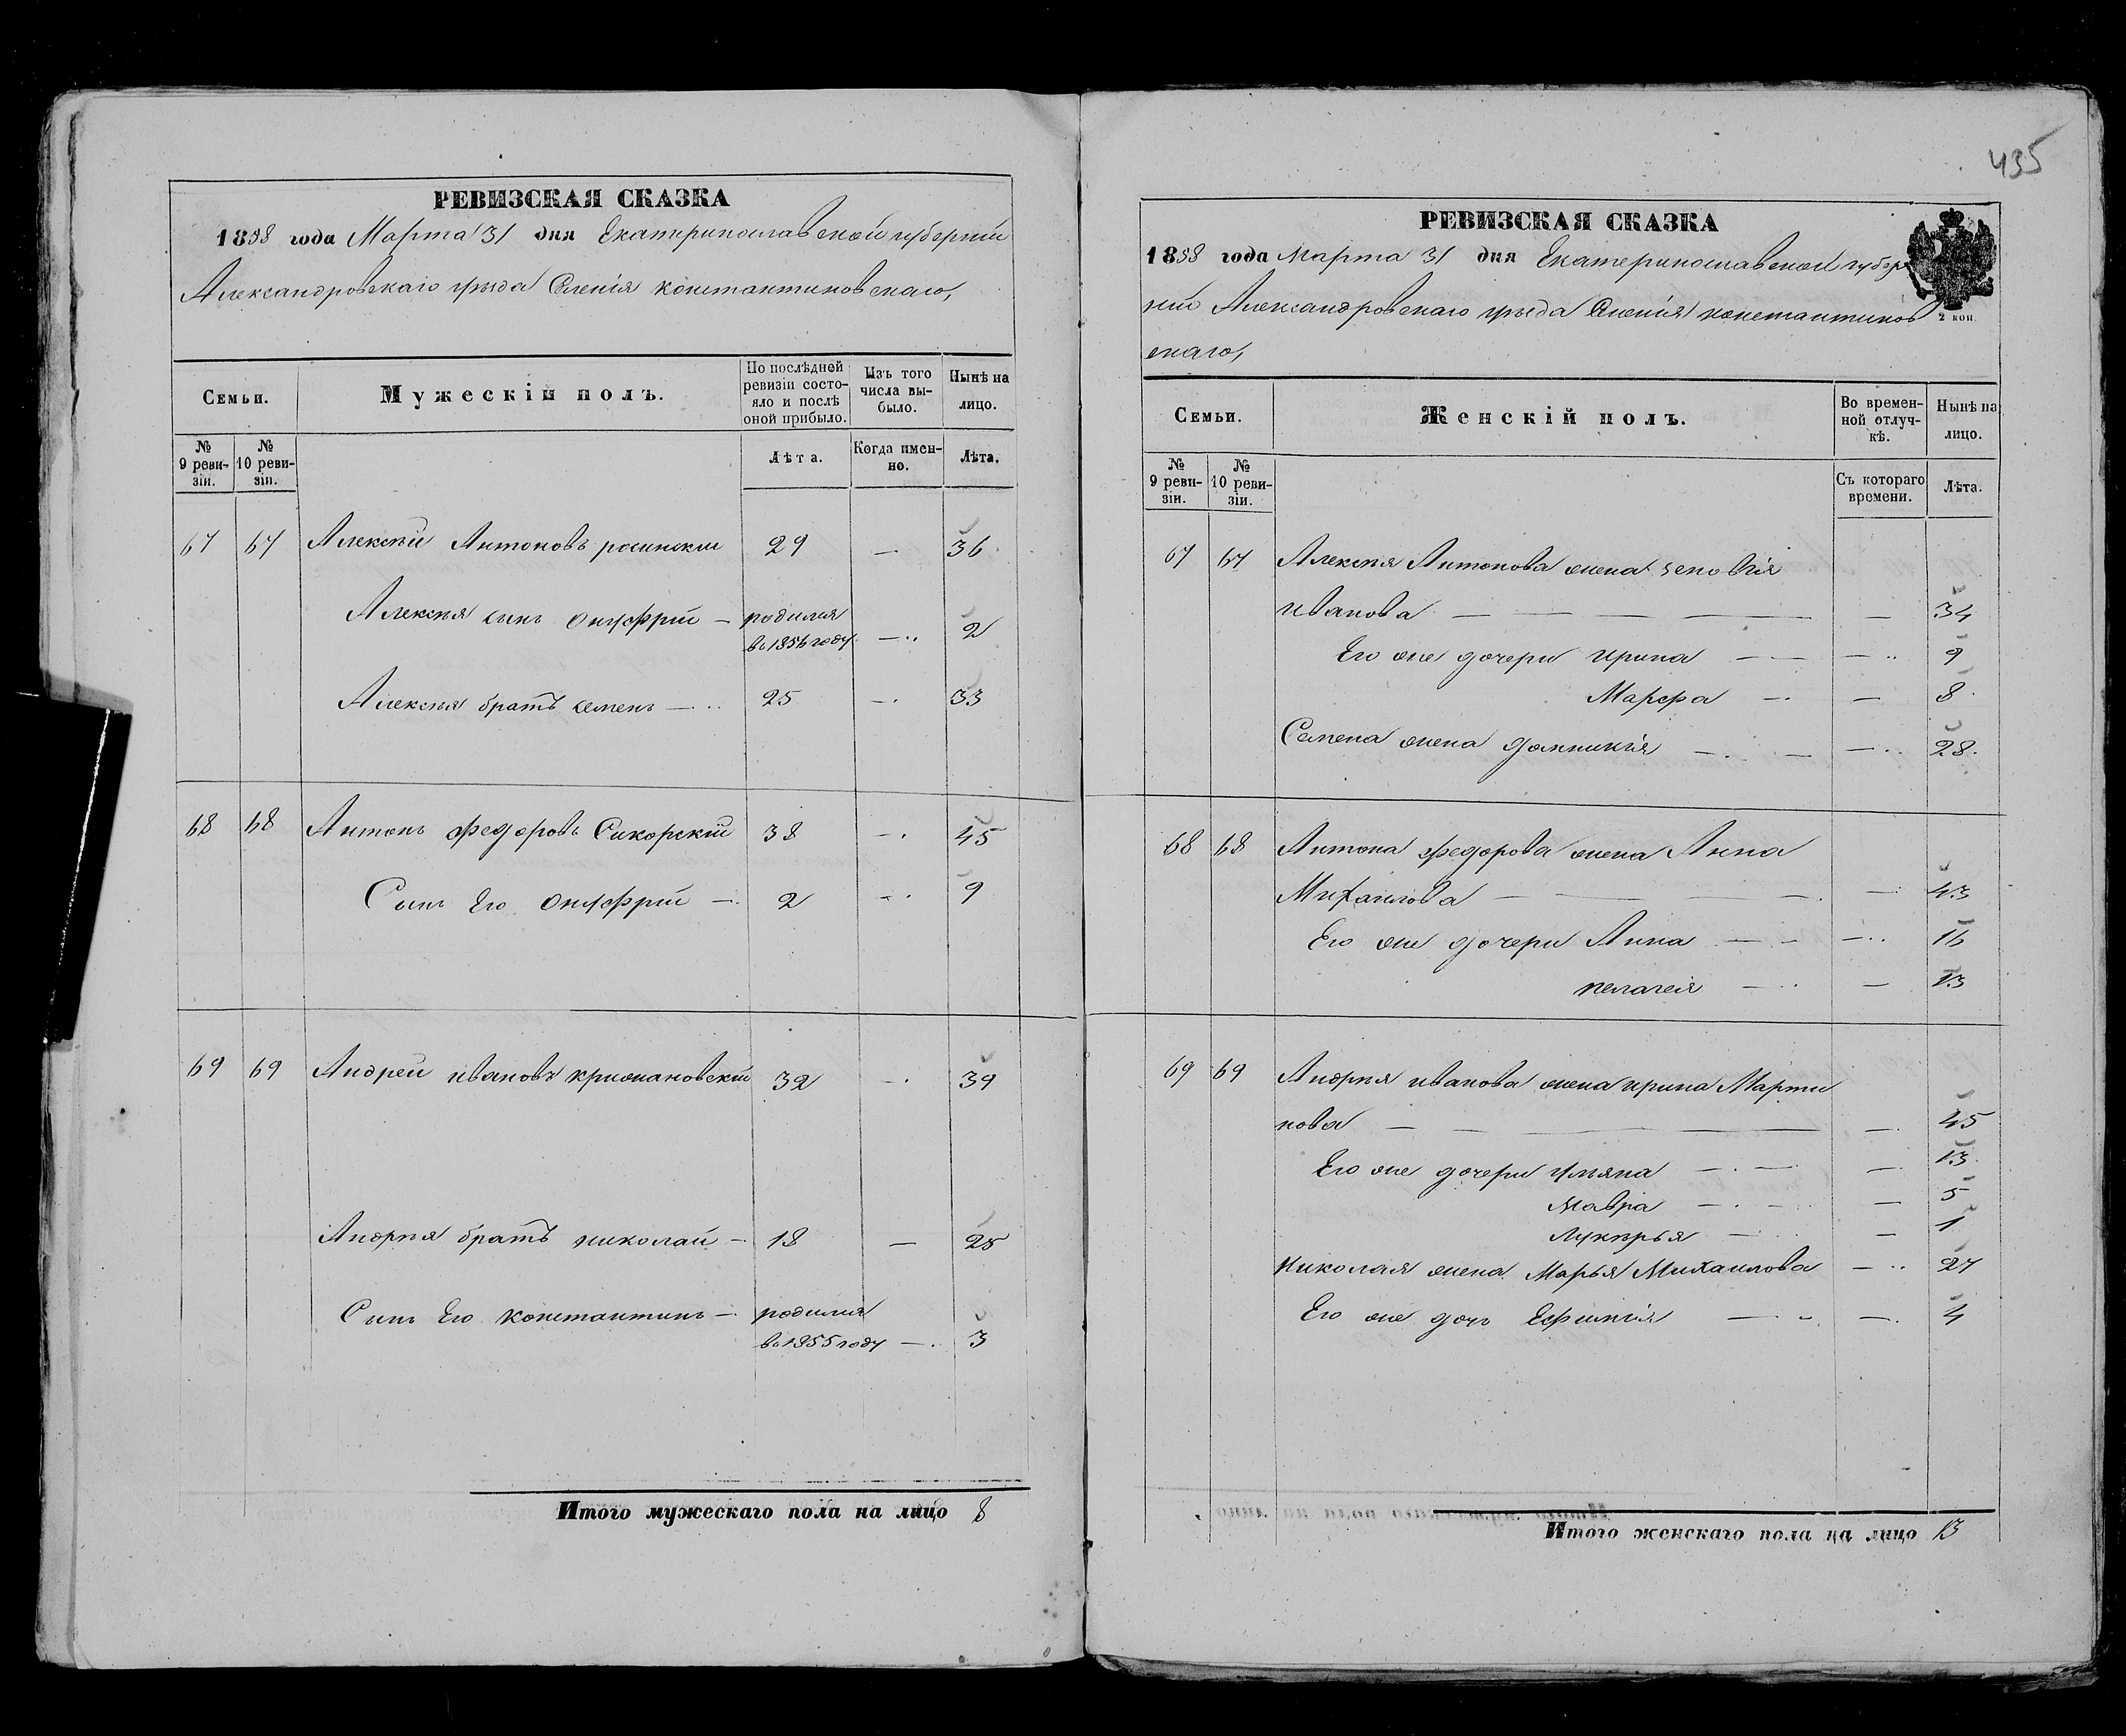 435
РЕВИЗСКАЯ СКАЗКА
1858 года Марта 31 дня Екатеринославской губерніи
Александровскаго уезда Селенія константиновскаго,
Семьи.
Мужескій полъ.
По послѣдней ревизіи состояло и послѣ оной прибыло.
Изъ того числа выбыло.
Нынѣ на лицо.
№ 9 ревизіи.
№ 10 ревизіи.
Лѣта.
Когда именно.
Лѣта.
67 67 Алексѣй Антоновъ росинскій 29 — 36
Алексѣя сынъ Онуфрій — родился в 1856 году — 2
Алексѣя братъ семенъ — 25 — 33
68 68 Антонъ федоровъ Сикорскій 38 — 45
Сынъ Его Онуфрій — 2 — 9
69 69 Андрей ивановъ крижановскій 32 — 39
Андрѣя братъ николай — 18 — 25
Сынъ Его константинъ — родился в 1855 году — 3
Итого мужескаго пола на лицо 8
РЕВИЗСКАЯ СКАЗКА
1858 года Марта 31 дня Екатеринославской губер
ніи Александровскаго уезда Селенія константинов
скаго,
2 коп.
Семьи.
Женскій полъ.
Во временной отлучкѣ.
Нынѣ на лицо.
№ 9 ревизіи.
№ 10 ревизіи.
Съ котораго времени.
Лѣта.
67 67 Алексѣя Антонова жена зеновія
иванова — — 34
Его же дочери ирина — — 9
Марфа — — 8
Семена жена домникія — — 28
68 68 Антона федорова жена Анна
Михаилова — — 43
Его же дочери Анна — — 16
пелагея — — 13
69 69 Андрѣя иванова жена ирина Марти
нова — — 45
Его же дочери ульяна — — 13
Мавра — — 5
Лукѣрья — — 1
николая жена Марья Михаилова — 27
Его же дочь Ефимія — — 4
Итого женскаго пола на лицо 13